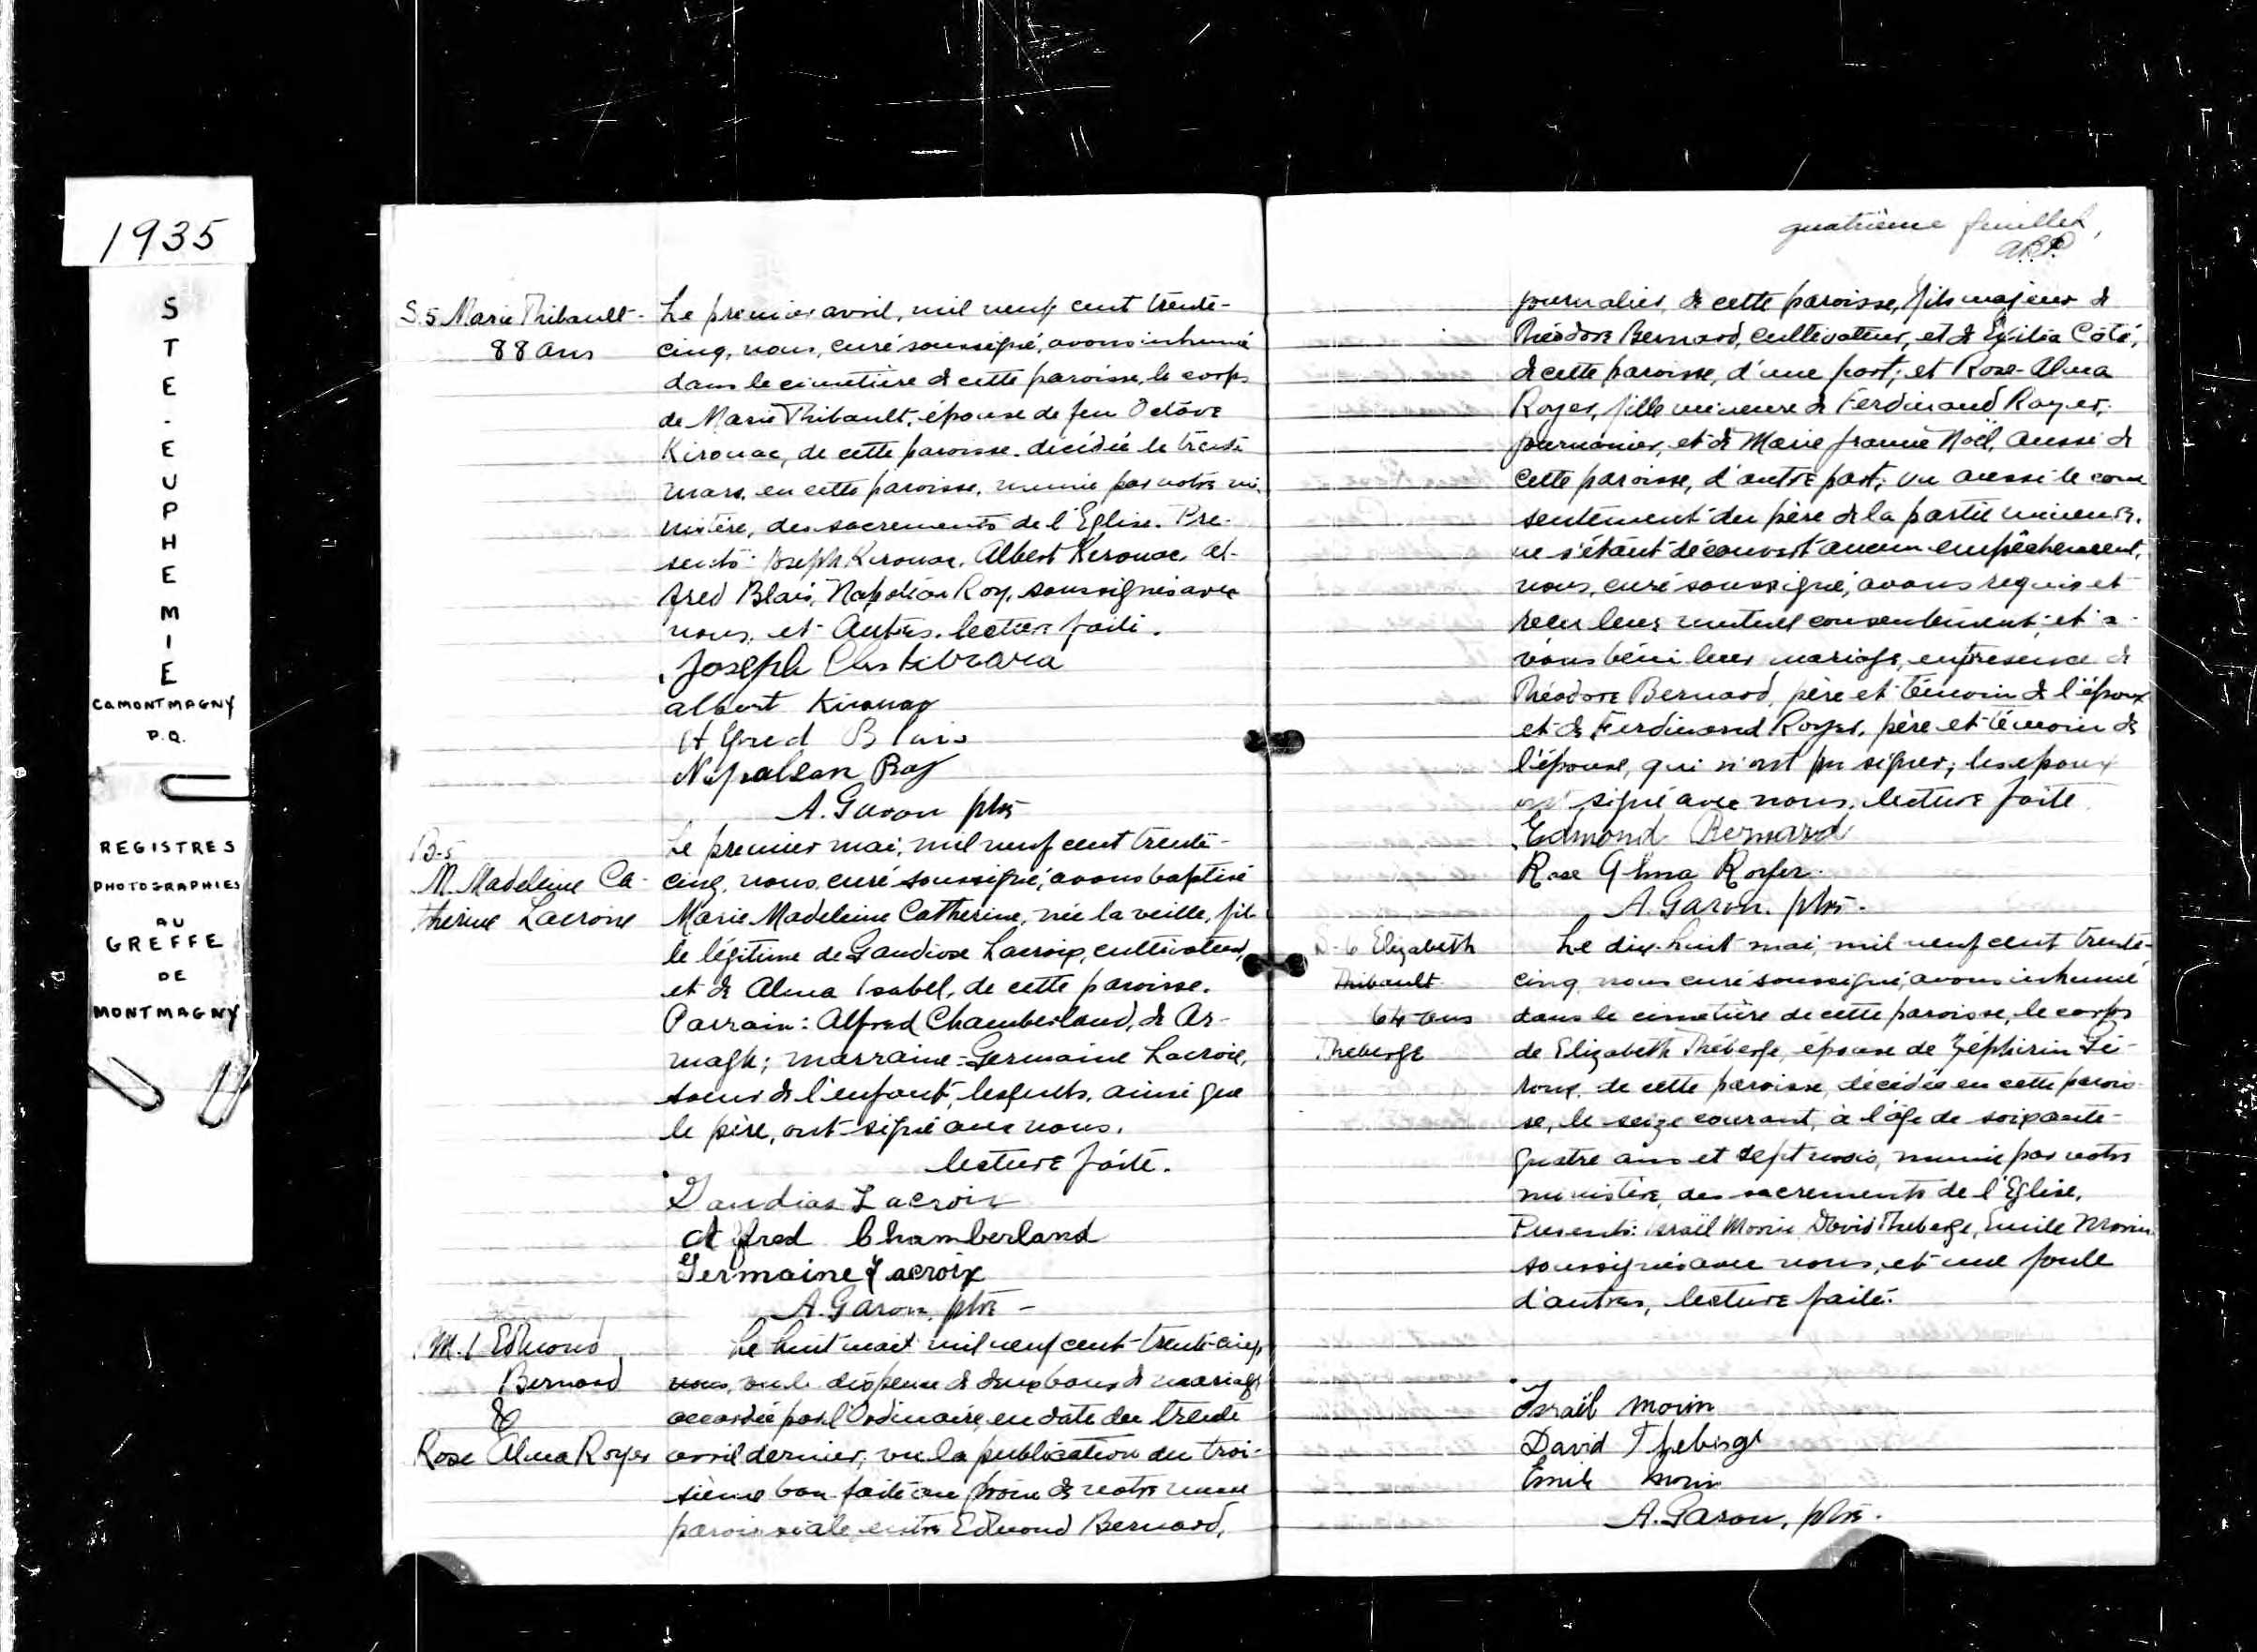 1935
STE-EUPHEMIE
CO MONTMAGNY
P.Q.
REGISTRES
PHOTOGRAPHIES
AU
GREFFE
DE
MONTMAGNY
S.5 Marie Thibault
88 ans
Le premier avril, mil neuf cent trente-
cinq, nous, curé soussigné, avons inhumé
dans le cimetière de cette paroisse, le corps
de Marie Thibault, épouse de feu Octave
Kirouac, de cette paroisse, décédée le trente
mars, en cette paroisse, munie par notre mi-
nistère, des sacrements de l'Eglise. Pré-
sents: Joseph Kirouac, Albert Kerouac, Al-
fred Blais, Napoléon Roy, soussignés avec
nous, et autres. lecture faite.
Joseph
Albert Kirouac
Alfred Blais
Napoleon Roy
A. Garon ptre
B-5
M. Madeleine Ca-
therine Lacroix
Le premier mai, mil neuf cent trente-
cinq, nous, curé soussigné, avons baptisé
Marie Madeleine Catherine, née la veille, fil-
le légitime de Gaudiose Lacroix, cultivateur,
et de Alma Isabel, de cette paroisse.
Parrain: Alfred Chamberland, de Ar-
magh; marraine: Germaine Lacroix,
soeur de l'enfant, lesquels, ainsi que
le père, ont signé avec nous.
lecture faite.
Gaudias Lacroix
Alfred Chamberland
Germaine Lacroix
A. Garon, ptre -
M.1 Edmond
Bernard
&
Rose Alma Royer
Le huit mai mil neuf cent trente-cinq,
nous, vu la dispense de deux bans de mariage
accordée par l'Ordinaire, en date du trente
avril dernier, vu la publication du troi-
sième ban faite au prône de notre messe
paroissiale, entre Edmond Bernard,
quatrième feuillet,
journalier, de cette paroisse, fils majeur de
Théodore Bernard, cultivateur, et de Exilia Côté,
de cette paroisse, d'une part; et Rose-Alma
Royer, fille mineure de Ferdinand Royer,
journanier, et de Marie Noël, aussi de
cette paroisse, d'autre part; vu aussi le con
sentement du père de la partie mineure,
ne s'étant découvert aucun empêchement,
nous, curé soussigné, avons requis et
reçu leur mutuel consentement, et a-
vons béni leur mariage, en présence de
Théodore Bernard, père et témoin de l'époux
et de Ferdinand Royer, père et témoin de
l'épouse, qui n'ont pu signer; les époux
ont signé avec nous, lecture faite.
Edmond Bernard
Rose Alma Royer.
A. Garon. ptre.
S-6 Elizabeth
Thibault
64 ans
Théberge
Le dix-huit mai, mil neuf cent trente-
cinq, nous curé soussigné, avons inhumé
dans le cimetière de cette paroisse, le corps
de Elizabeth Théberge, épouse de Zéphirin Gi-
roux, de cette paroisse, décédée en cette parois-
se, le seize courant, à l'âge de soixante-
quatre ans et sept mois, munie par notre
ministère, des sacrements de l'Eglise.
Présents: Israël Morin, David Theberge, Emile Morin
soussignés avec nous, et une foule
d'autres, lecture faite.
Israël Morin
David Theberge
Emile Morin
A. Garon, ptre.